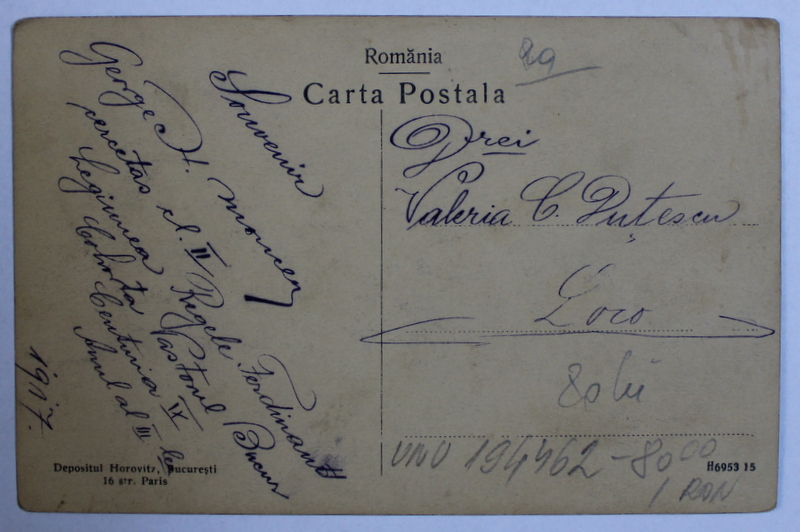 România
Carta Postala
89
Souvenir
George H. Moncea
cercetaș cl. II Regele Ferdinand
Legiunea Pastorul Bucur
Cohorta IX
Centuria III
Anul al lea
1917.
Drei
Valeria C. Puțescu
Loco
80 lei
UNU 194462 - 8000
1 RON
Depositul Horovitz, București
16 str. Paris
H6953 15